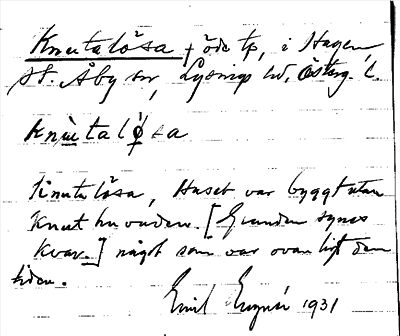 Knutalösa † öde tp, i Hagen,
St. Åby sn, Lysings hd, Österg. l.
Knùtalø̀sa
Knutalösa, Huset var byggt utan
Knuthuvuden. [Grunden synes
kvar.] något som var ovanligt den
tiden.
Emil 1931